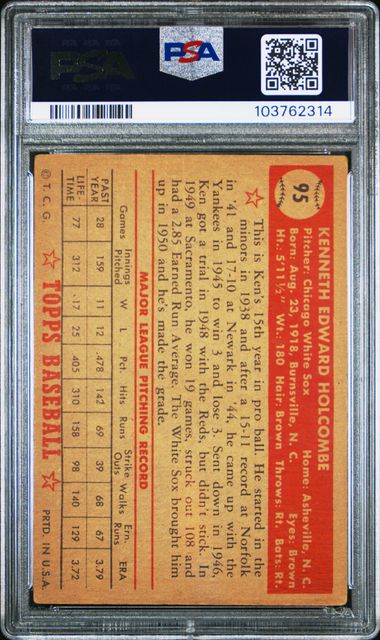 PSA
PSA
103762314
95
KENNETH EDWARD HOLCOMBE
Pitcher: Chicago White Sox Home: Asheville, N. C.
Born: Aug. 23, 1918, Burnsville, N. C. Eyes: Brown
Ht.: 5'11½" Wt.: 180 Hair: Brown Throws: Rt. Bats: Rt.
This is Ken's 15th year in pro ball. He started in the
minors in 1938 and after a 15-11 record at Norfolk
in '41 and 17-10 at Newark in '44, he came up with the
Yankees in 1945 to win 3 and lose 3. Sent down in 1946,
Ken got a trial in 1948 with the Reds, but didn't stick. In
1949 at Sacramento, he won 19 games, struck out 108 and
had a 2.85 Earned Run Average. The White Sox brought him
up in 1950 and he's made the grade.
MAJOR LEAGUE PITCHING RECORD
Games Innings Pitched W L Pct. Hits Runs Strike Outs Walks Ern. Runs ERA
PAST YEAR 28 159 11 12 .478 142 69 39 68 67 3.79
LIFE TIME 77 312 17 25 .405 310 158 98 140 129 3.72
© T. C. G. TOPPS BASEBALL PRTD. IN U.S.A.